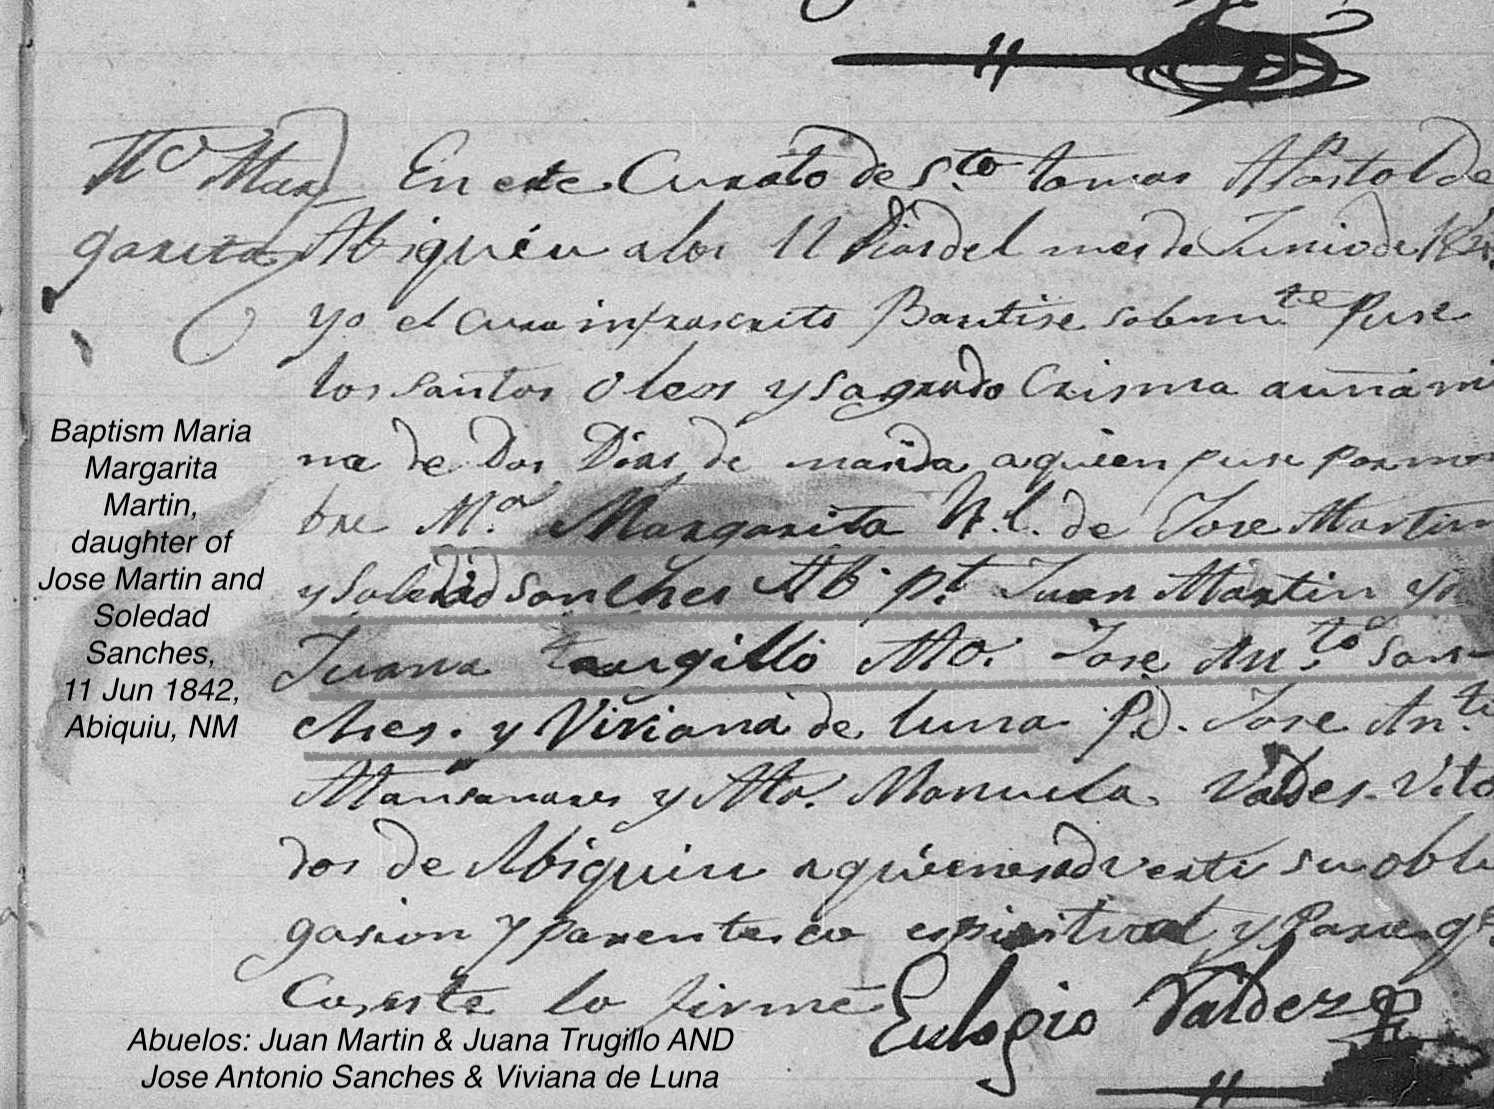 Ma Mar
garita
En este Curato de Sto tomas Apostol de
Abiquíu a los 11 Dias del mes de Junio de 184
yo el Cura infrascrito Bautise solemte Puse
los santos oleos y sagrado Crisma a una ni
na de Dos Dias de nasida a quien puse por nom
bre Ma. Margarita H. l. de Jose Martin
y Soledad Sanches Ab. pt Juan Martin y
Juana trugillo Mo. Jose Anto. San
ches. y Viviana de luna Pd. Jose Anto
Mansanares y Ma. Manuela Valdes. Vito
dos de Abiquiu a quienes adverti su obli
gasion y parentesco espiritual y Para qe.
Conste lo firmé
Eulogio Valdez
Baptism Maria
Margarita
Martin,
daughter of
Jose Martin and
Soledad
Sanches,
11 Jun 1842,
Abiquiu, NM
Abuelos: Juan Martin & Juana Trugillo AND
Jose Antonio Sanches & Viviana de Luna